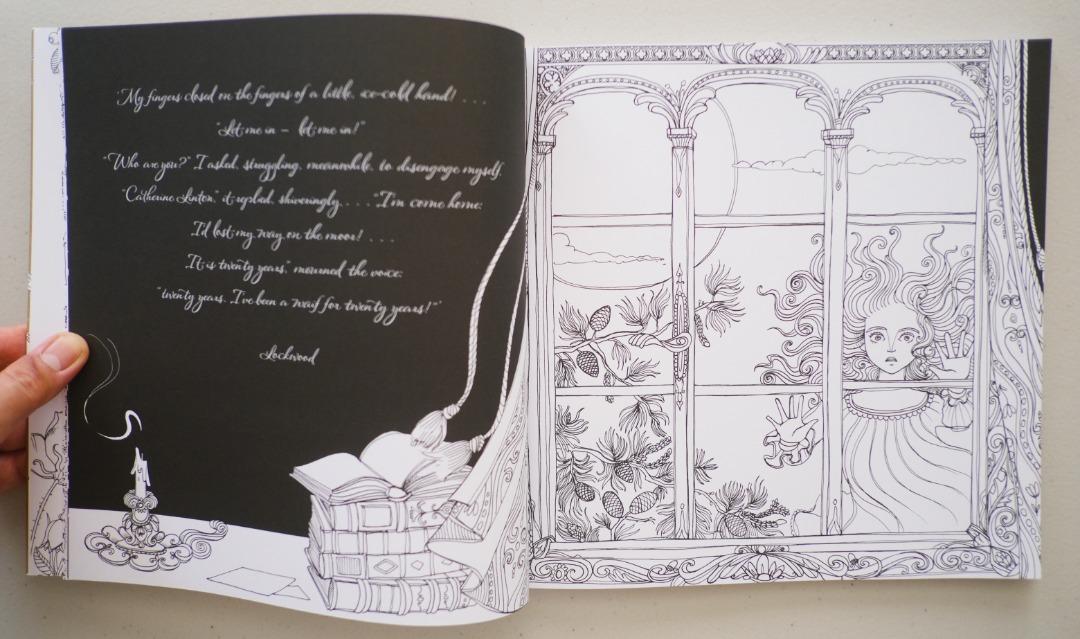 "My fingers closed on the fingers of a little, ice-cold hand! . . .
"Let me in – let me in!"
"Who are you?" I asked, struggling, meanwhile, to disengage myself.
"Catherine Linton," it replied, shiveringly. . . . "I'm come home:
I'd lost my way on the moor! . . .
It is twenty years," mourned the voice:
"twenty years. I've been a waif for twenty years!"
Lockwood